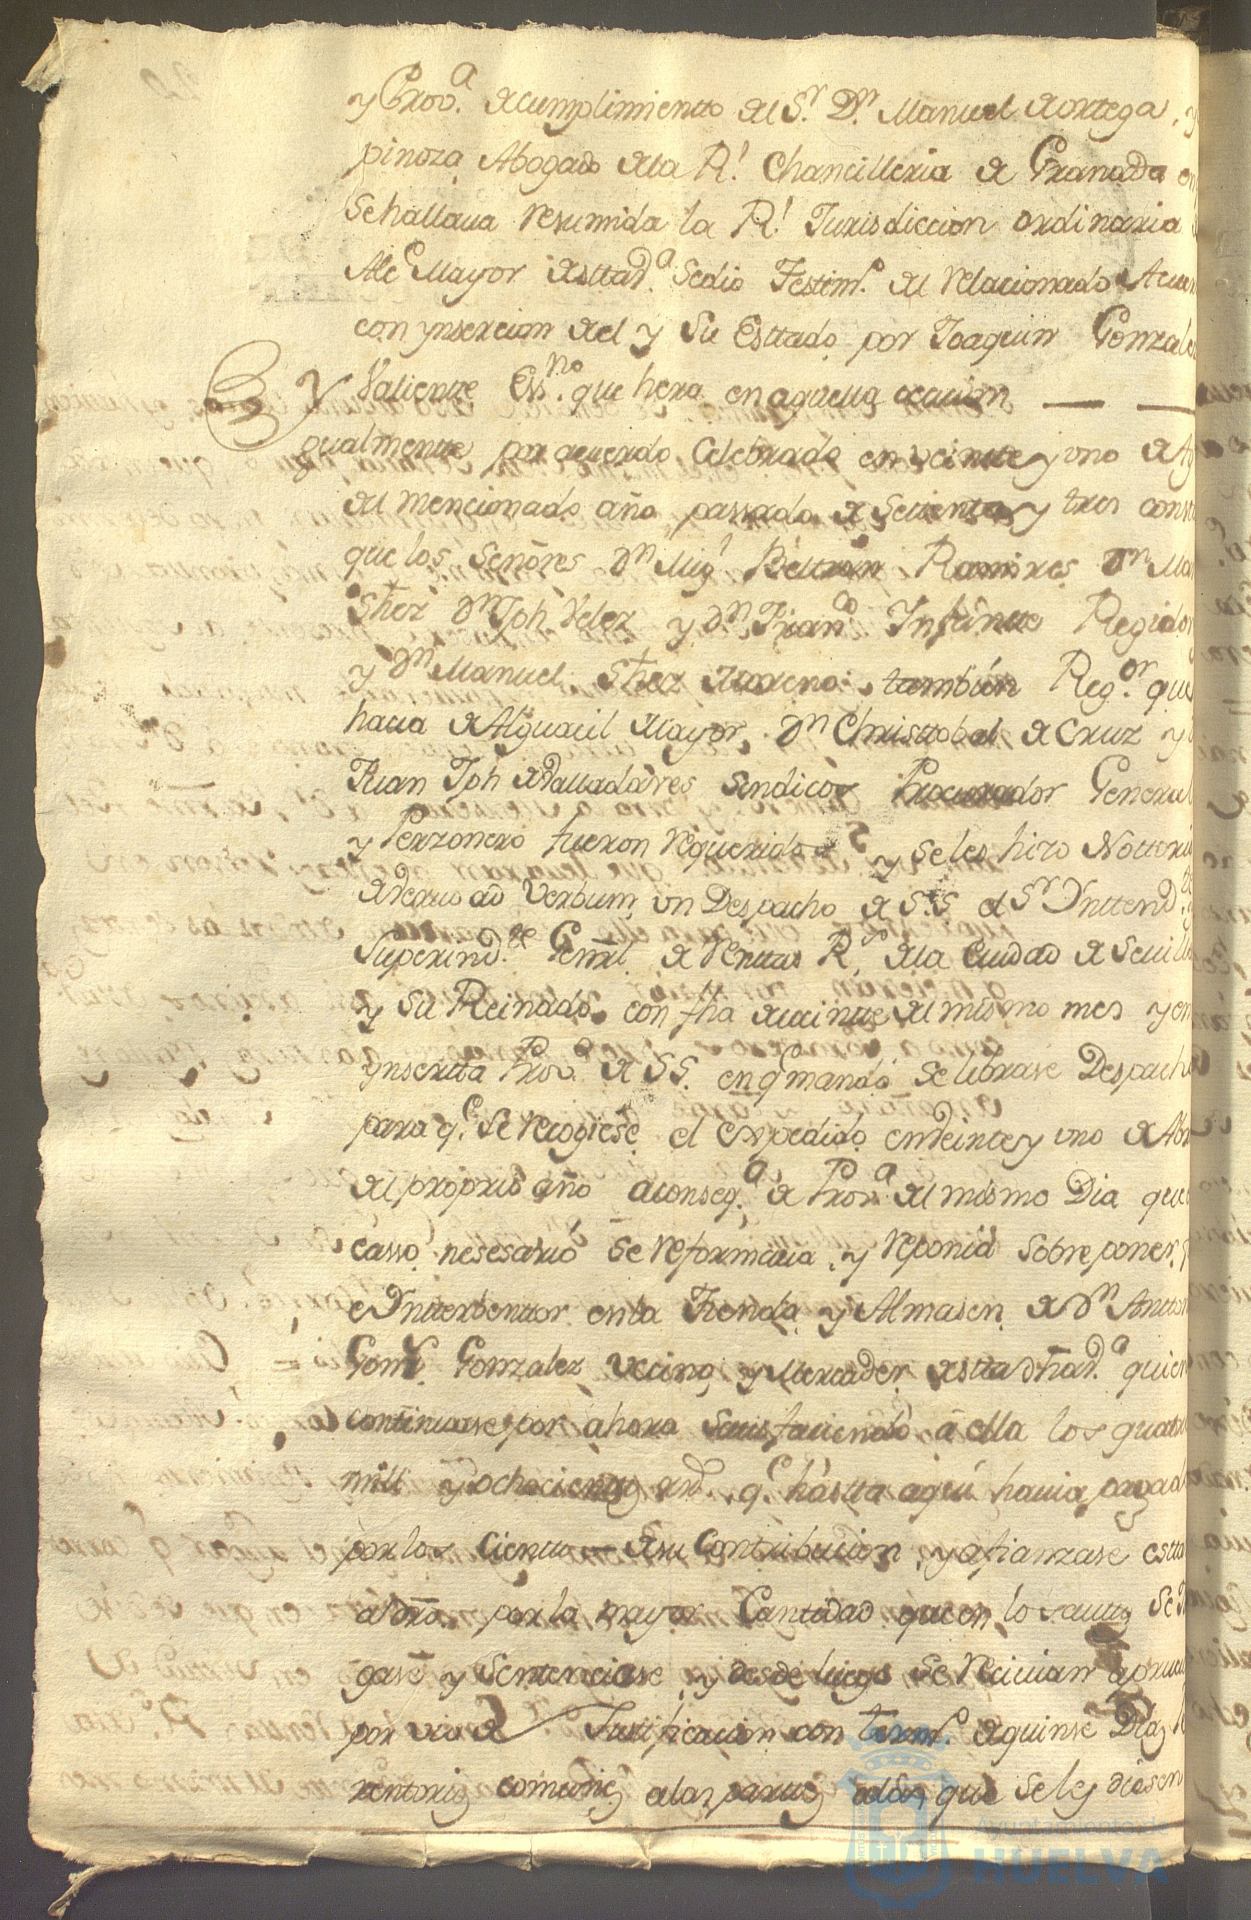 y Prov.ª de cumplimiento del S.r D.n Manuel de ortega, y
pinoza Abogado de la R.l Chancilleria de Granada en
Se hallaua resumida la R.l Jurisdiccion ordinaria
Alc.e Mayor de estta d.ª Se dio Testim.o del relacionado Acuer
con ynsercion de el y Su Esttado por Joaquin Gonzales
Valiente Ess.no que hera en aquella ocacion
Y gualmente por acuerdo Celebrado en veintte y uno de Ag
del mencionado año passado de Settenta y tres const
que los Señores d.n Mig.l Beltran Ramires d.n Man
Shez d.n Jph Velez y d.n Fran.co Infantte Regidor
y d.n Manuel Shez Moreno tambien Reg.or que
hacia de Alguacil Mayor, d.n Christtobal de Cruz y
Juan Jph de Valladares Sindicos Procurador General
y Perzonero fueron requeridos y se les hizo Nottori
de Verbo ad Verbum un Despacho de S.S. el S.r Ynttend.te
Superind.te Genrl. de Renttas R.s de la Ciudad de Seuilla
y Su Reinado con fha de veintte del mismo mes y en
ynsertta Prov.ª de SS. en q mandó se librase Despacho
para q.e Se recogiese el expedido en Veinte y uno de Abr
del proprio año a conseq.ª de Prov.ª del mismo Dia que
casso nesesario se reformaua, y reponia sobre poner
e Yntterbenttor en la Tienda y Almasen de D.n Antton
Gom.z Gonzalez vecino y Mercader de estta dha d.ª quien
continuase por ahora Sattisfaciendo a ella los quatr
mill y ochocienttos q.e hastta aqui hauia pagad
por los Cientos de su Contribucion, y afianzase estta
por la mayor Canttidad que en los auttos Se
gase y Sentenciase y desde luego se reciuian a prueu
por via de Justtificacion con term.o de quinse Dias
renttorios comunes a las parttes a las que se les diesen
Ayuntamiento de
HUELVA